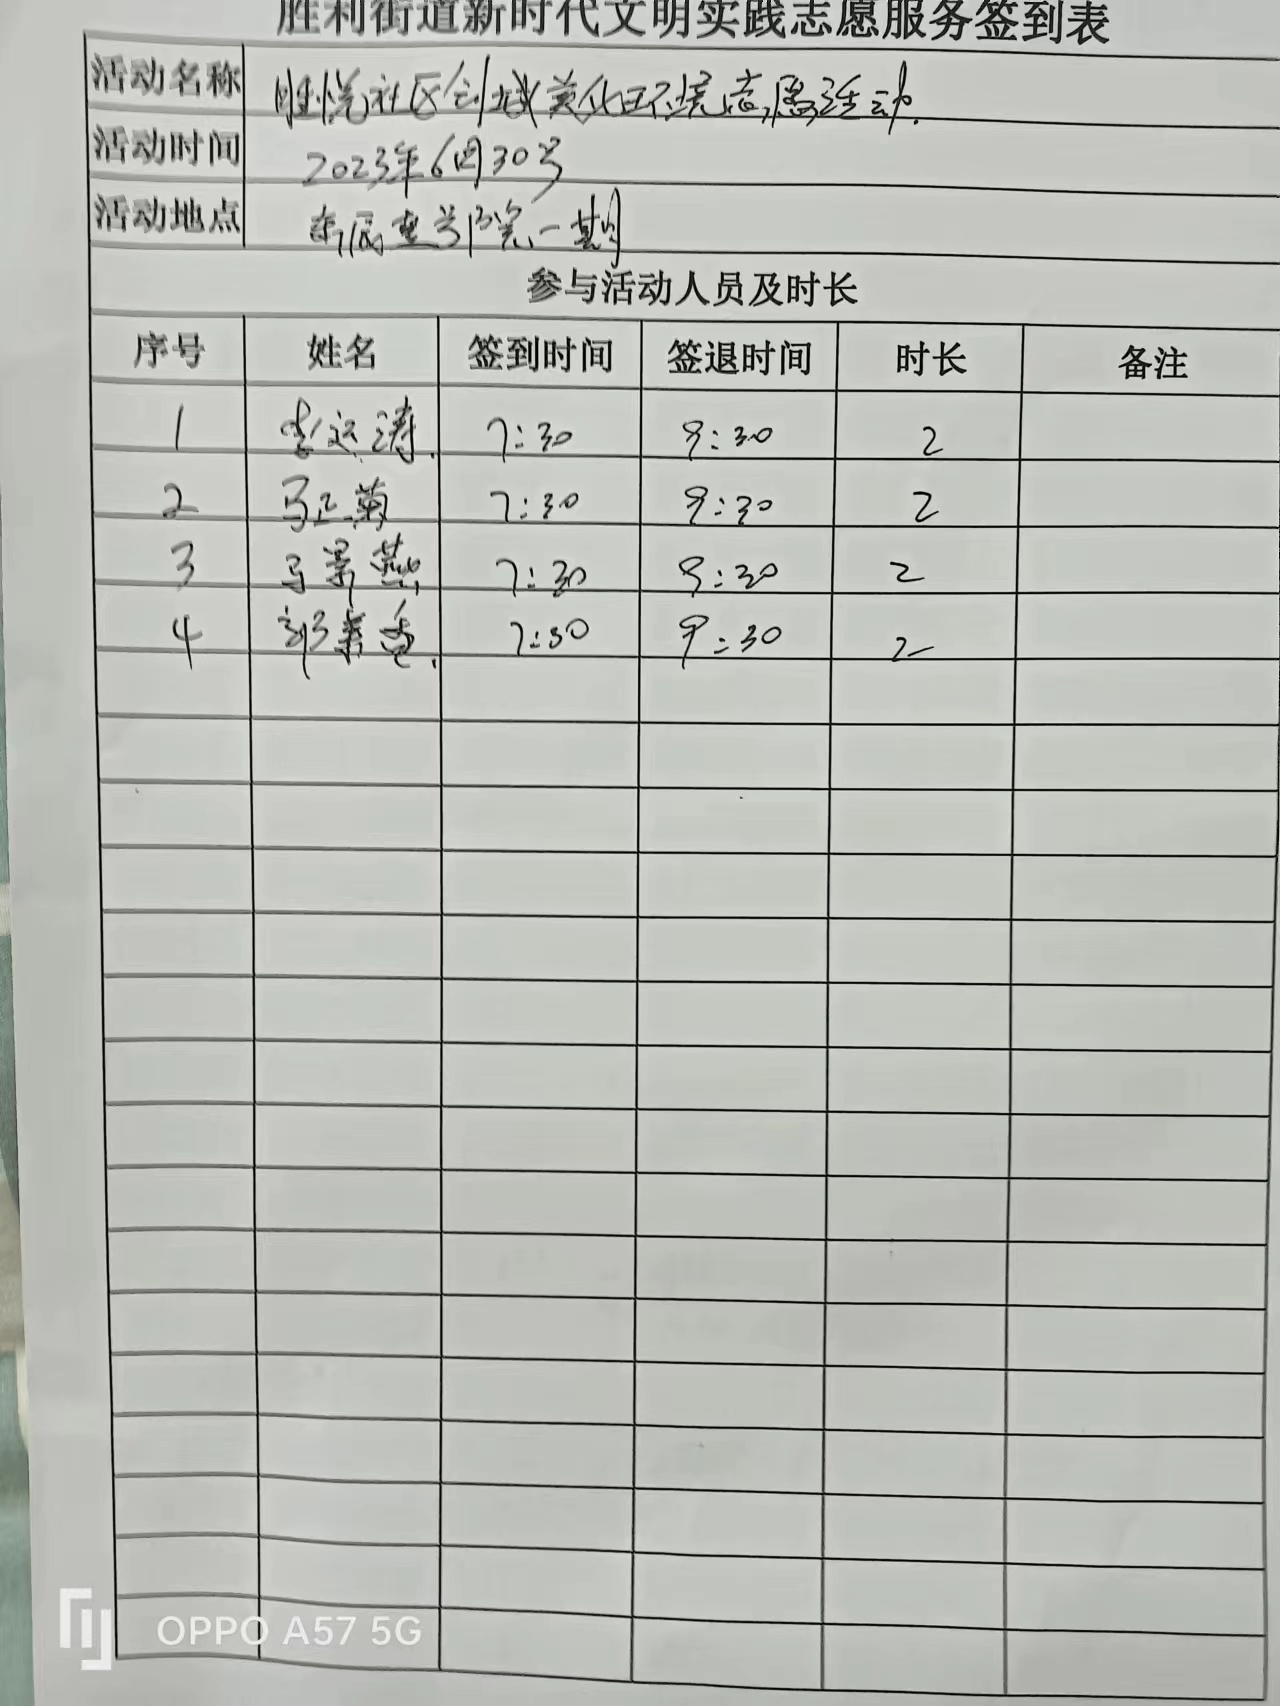 胜利街道新时代文明实践志愿服务签到表
活动名称 胜悦社区创城美化环境志愿活动.
活动时间 2023年6月30号
活动地点 东辰壹号院一期
参与活动人员及时长
序号 姓名 签到时间 签退时间 时长 备注
1 李运涛. 7:30 9:30 2
2 马正菊 7:30 9:30 2
3 马景燕 7:30 9:30 2
4 郭素香. 7:30 9:30 2
OPPO A57 5G